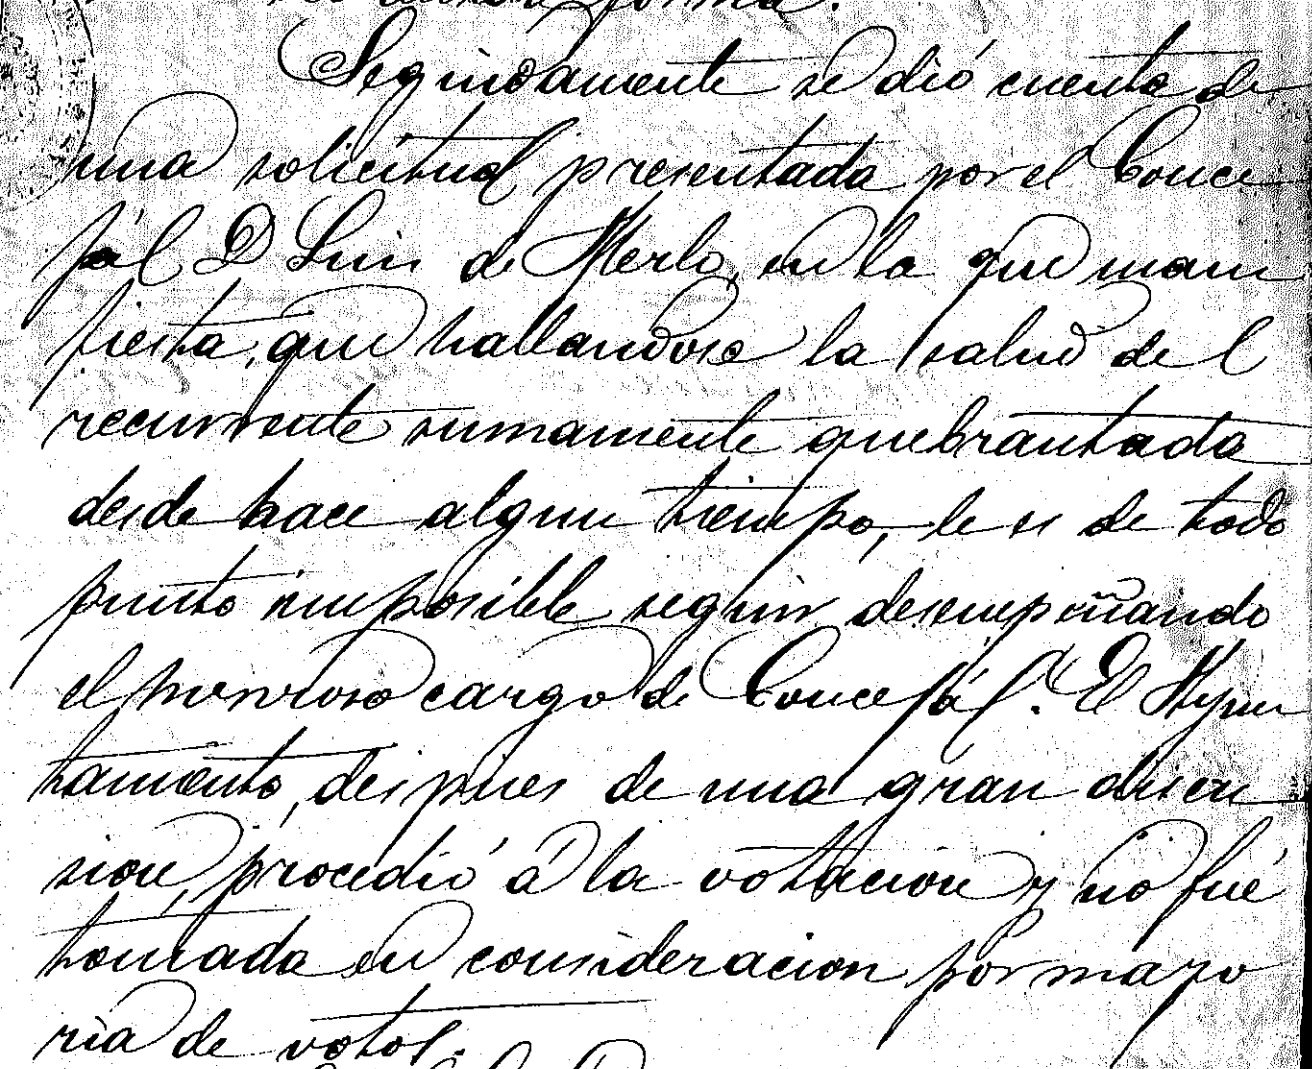 forma.
Seguidamente se dió cuenta de
una solicitud presentada por el Conce
jál D Luis de Merlo, en la que mani
fiesta, que hallandose la salud del
recurrente sumamente quebrantada
desde hace algun tiempo, le es de todo
punto imposible seguir desempeñando
el honroso cargo de Concejál. El Ayun
tamiento, despues de una gran discu
sion, procedió á la votacion y no fué
tomada en consideracion por mayo
ria de votos.